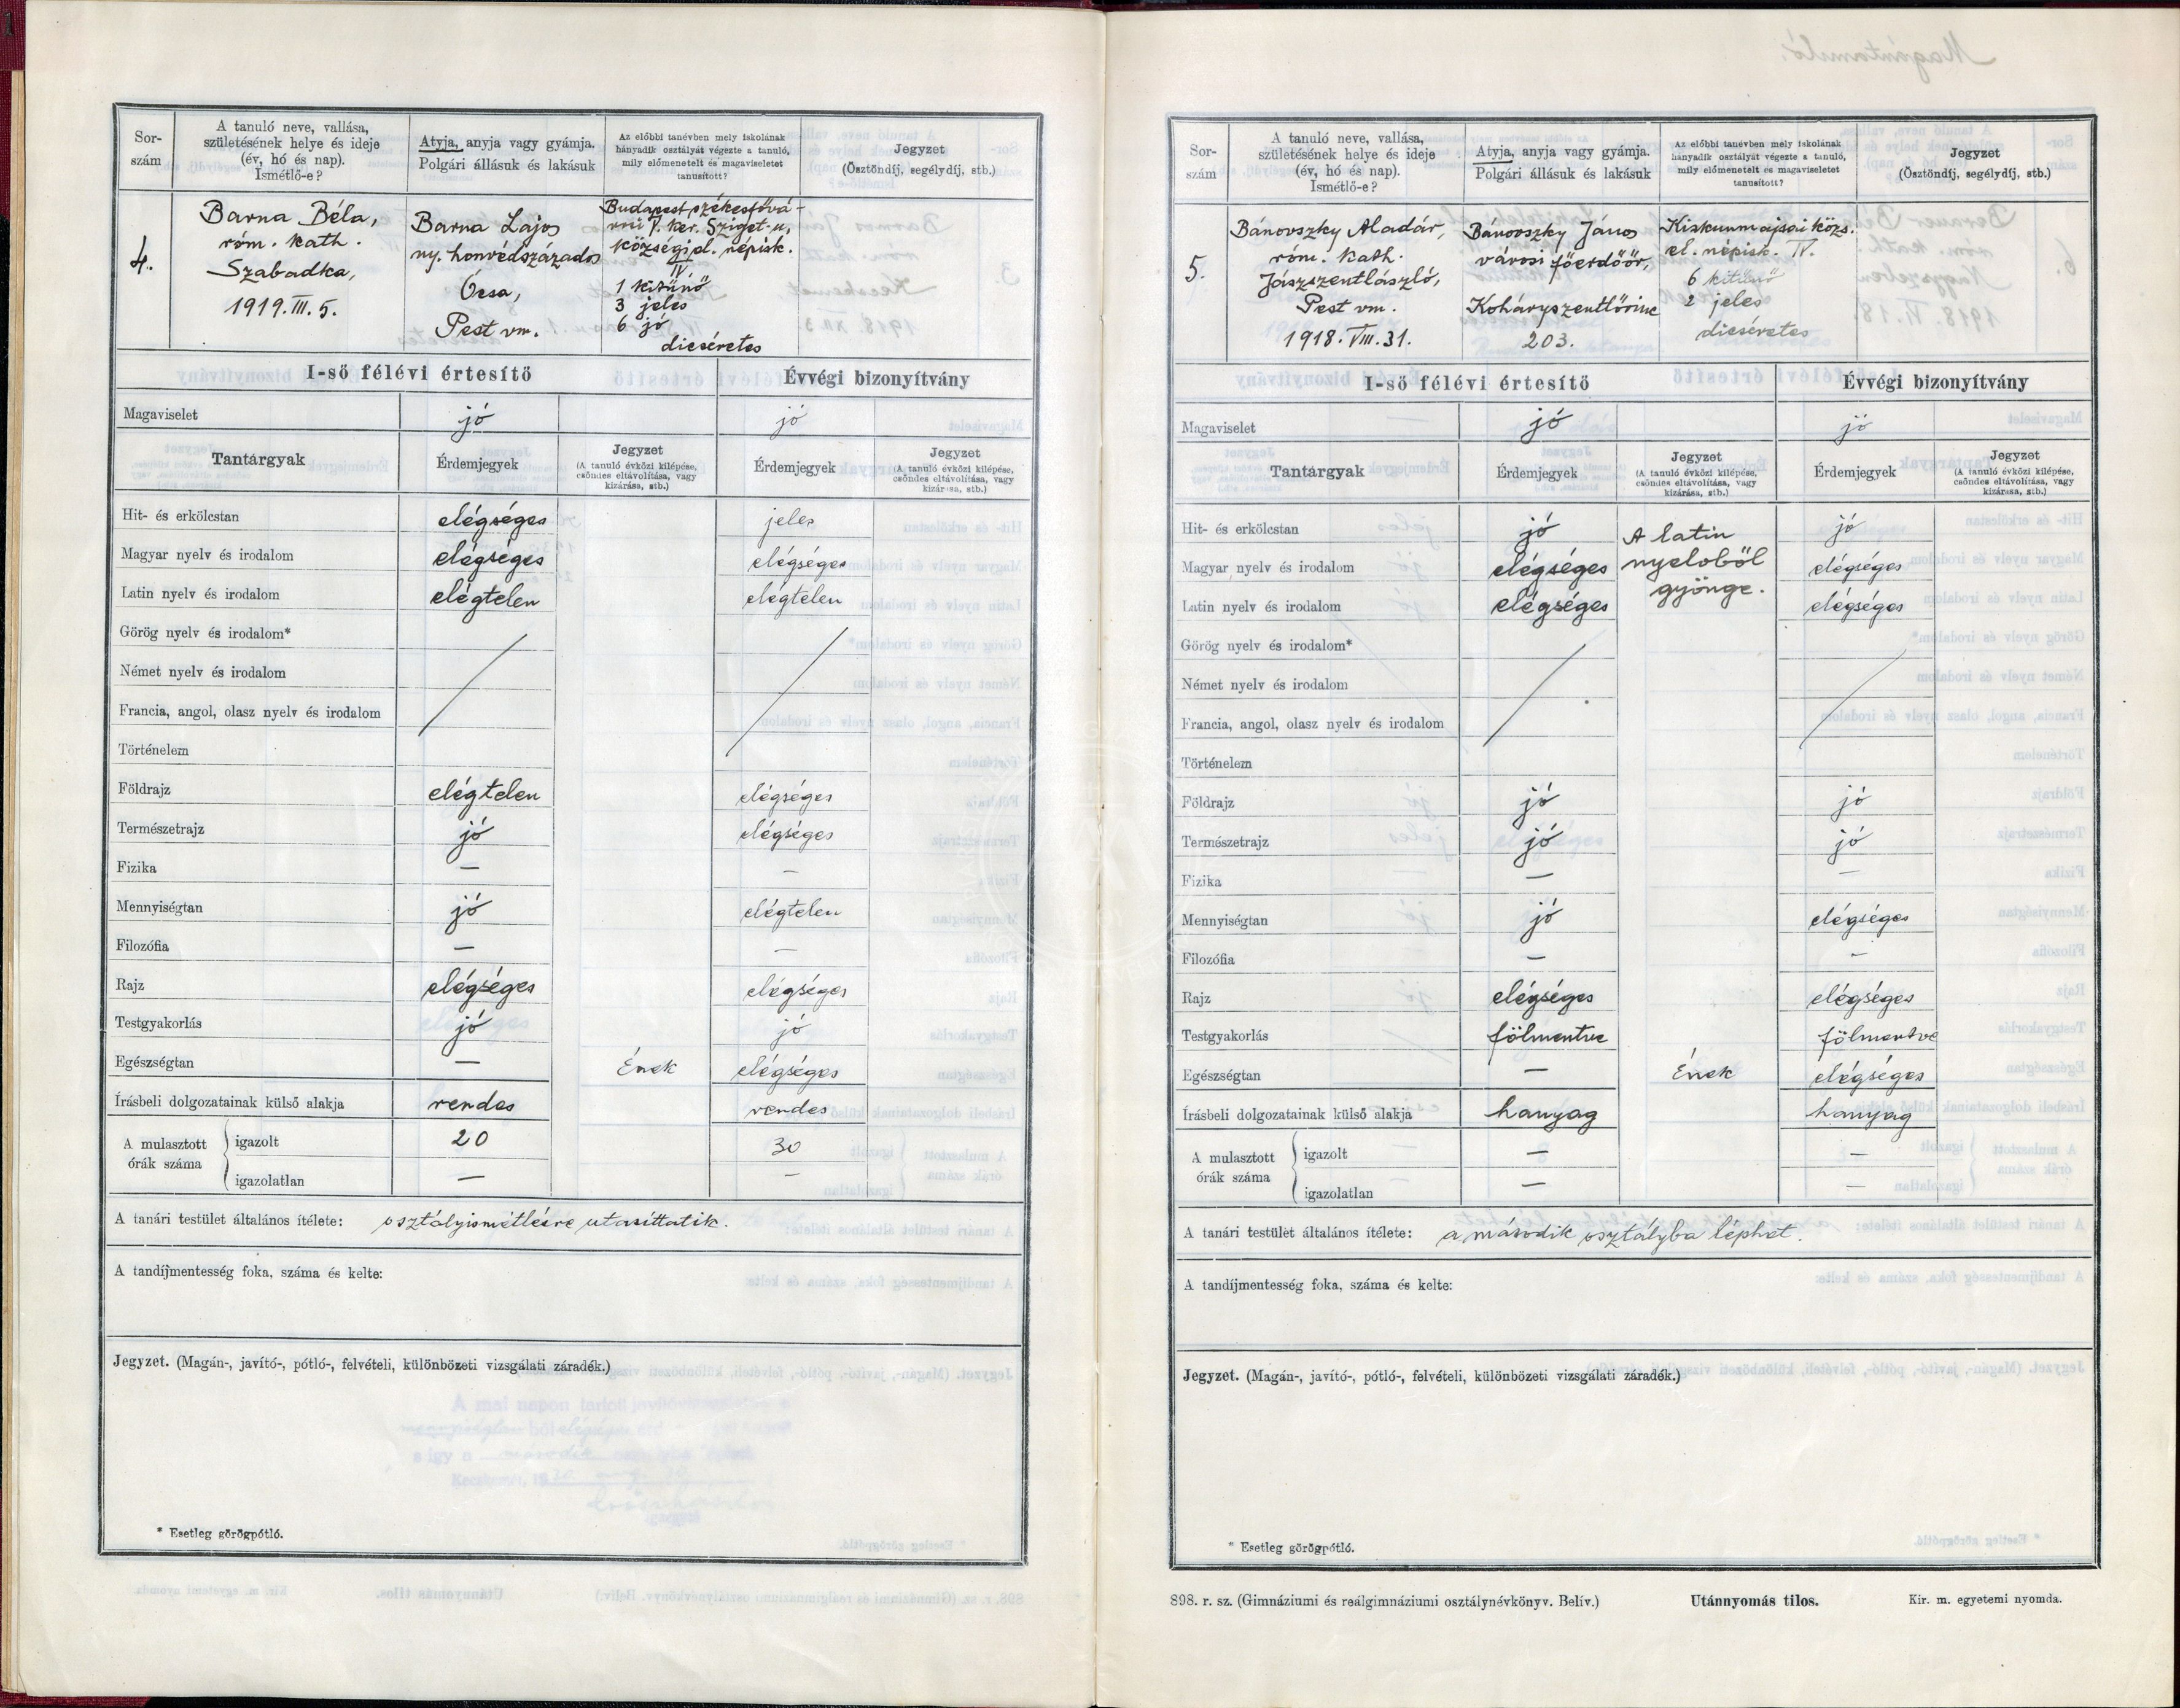 Sor-
szám
A tanuló neve, vallása,
születésének helye és ideje
(év, hó és nap).
Ismétlő-e?
Atyja, anyja vagy gyámja.
Polgári állásuk és lakásuk
Az előbbi tanévben mely iskolának
hányadik osztályát végezte a tanuló,
mily előmenetelt és magaviseletet
tanusított?
Jegyzet
(Ösztöndíj, segélydíj, stb.)
4.
Barna Béla,
róm. kath.
Szabadka,
1919. III. 5.
Barna Lajos
ny. honvédszázados
Ócsa,
Pest vm.
Budapest székesfővá-
rosi ker. Sziget-u,
községi el. népisk.
IV.
1 kitünő
3 jeles
6 jó
dicséretes
I-ső félévi értesítő
Évvégi bizonyítvány
Magaviselet jó jó
Tantárgyak
Érdemjegyek
Jegyzet
(A tanuló évközi kilépése,
csöndes eltávolítása, vagy
kizárása, stb.)
Érdemjegyek
Jegyzet
(A tanuló évközi kilépése,
csöndes eltávolítása, vagy
kizárása, stb.)
Hit- és erkölcstan elégséges jeles
Magyar nyelv és irodalom elégséges elégséges
Latin nyelv és irodalom elégtelen elégtelen
Görög nyelv és irodalom*
Német nyelv és irodalom
Francia, angol, olasz nyelv és irodalom
Történelem
Földrajz elégtelen elégséges
Természetrajz jó elégséges
Fizika — —
Mennyiségtan jó elégtelen
Filozófia — —
Rajz elégséges elégséges
Testgyakorlás jó jó
Egészségtan — Ének elégséges
Írásbeli dolgozatainak külső alakja rendes rendes
A mulasztott
órák száma
igazolt 20 30
igazolatlan — —
A tanári testület általános ítélete: osztályismétlésre utasíttatik.
A tandíjmentesség foka, száma és kelte:
Jegyzet. (Magán-, javító-, pótló-, felvételi, különbözeti vizsgálati záradék.)
* Esetleg görögpótló.
Sor-
szám
A tanuló neve, vallása,
születésének helye és ideje
(év, hó és nap).
Ismétlő-e?
Atyja, anyja vagy gyámja.
Polgári állásuk és lakásuk
Az előbbi tanévben mely iskolának
hányadik osztályát végezte a tanuló,
mily előmenetelt és magaviseletet
tanusított?
Jegyzet
(Ösztöndíj, segélydíj, stb.)
5.
Bánovszky Aladár,
róm. kath.
Jászszentlászló,
Pest vm.
1918. VIII. 31.
Bánovszky János
városi főerdőőr,
Koháryszentlőrinc
203.
Kiskunmajsai közs.
el. népisk. IV.
6 kitünő
2 jeles
dicséretes
I-ső félévi értesítő
Évvégi bizonyítvány
Magaviselet jó jó
Tantárgyak
Érdemjegyek
Jegyzet
(A tanuló évközi kilépése,
csöndes eltávolítása, vagy
kizárása, stb.)
Érdemjegyek
Jegyzet
(A tanuló évközi kilépése,
csöndes eltávolítása, vagy
kizárása, stb.)
Hit- és erkölcstan jó A latin jó
Magyar nyelv és irodalom elégséges nyelvből elégséges
Latin nyelv és irodalom elégséges gyönge. elégséges
Görög nyelv és irodalom*
Német nyelv és irodalom
Francia, angol, olasz nyelv és irodalom
Történelem
Földrajz jó jó
Természetrajz jó jó
Fizika — —
Mennyiségtan jó elégséges
Filozófia — —
Rajz elégséges elégséges
Testgyakorlás fölmentve fölmentve
Egészségtan — Ének elégséges
Írásbeli dolgozatainak külső alakja hanyag hanyag
A mulasztott
órák száma
igazolt — —
igazolatlan — —
A tanári testület általános ítélete: a második osztályba léphet.
A tandíjmentesség foka, száma és kelte:
Jegyzet. (Magán-, javító-, pótló-, felvételi, különbözeti vizsgálati záradék.)
* Esetleg görögpótló.
898. r. sz. (Gimnáziumi és reálgimnáziumi osztálynévkönyv. Belív.) Utánnyomás tilos. Kir. m. egyetemi nyomda.